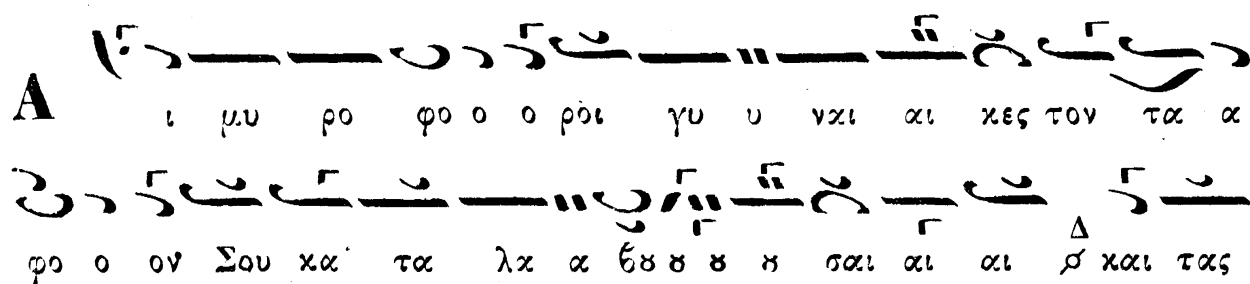 Α ι μυ ρο φο ο ο ροι γυ υ ναι αι κες τον τα α
φο ο ον Σου κα τα λα α ϐȣ ȣ ȣ ȣ σαι αι αι Δ και τας